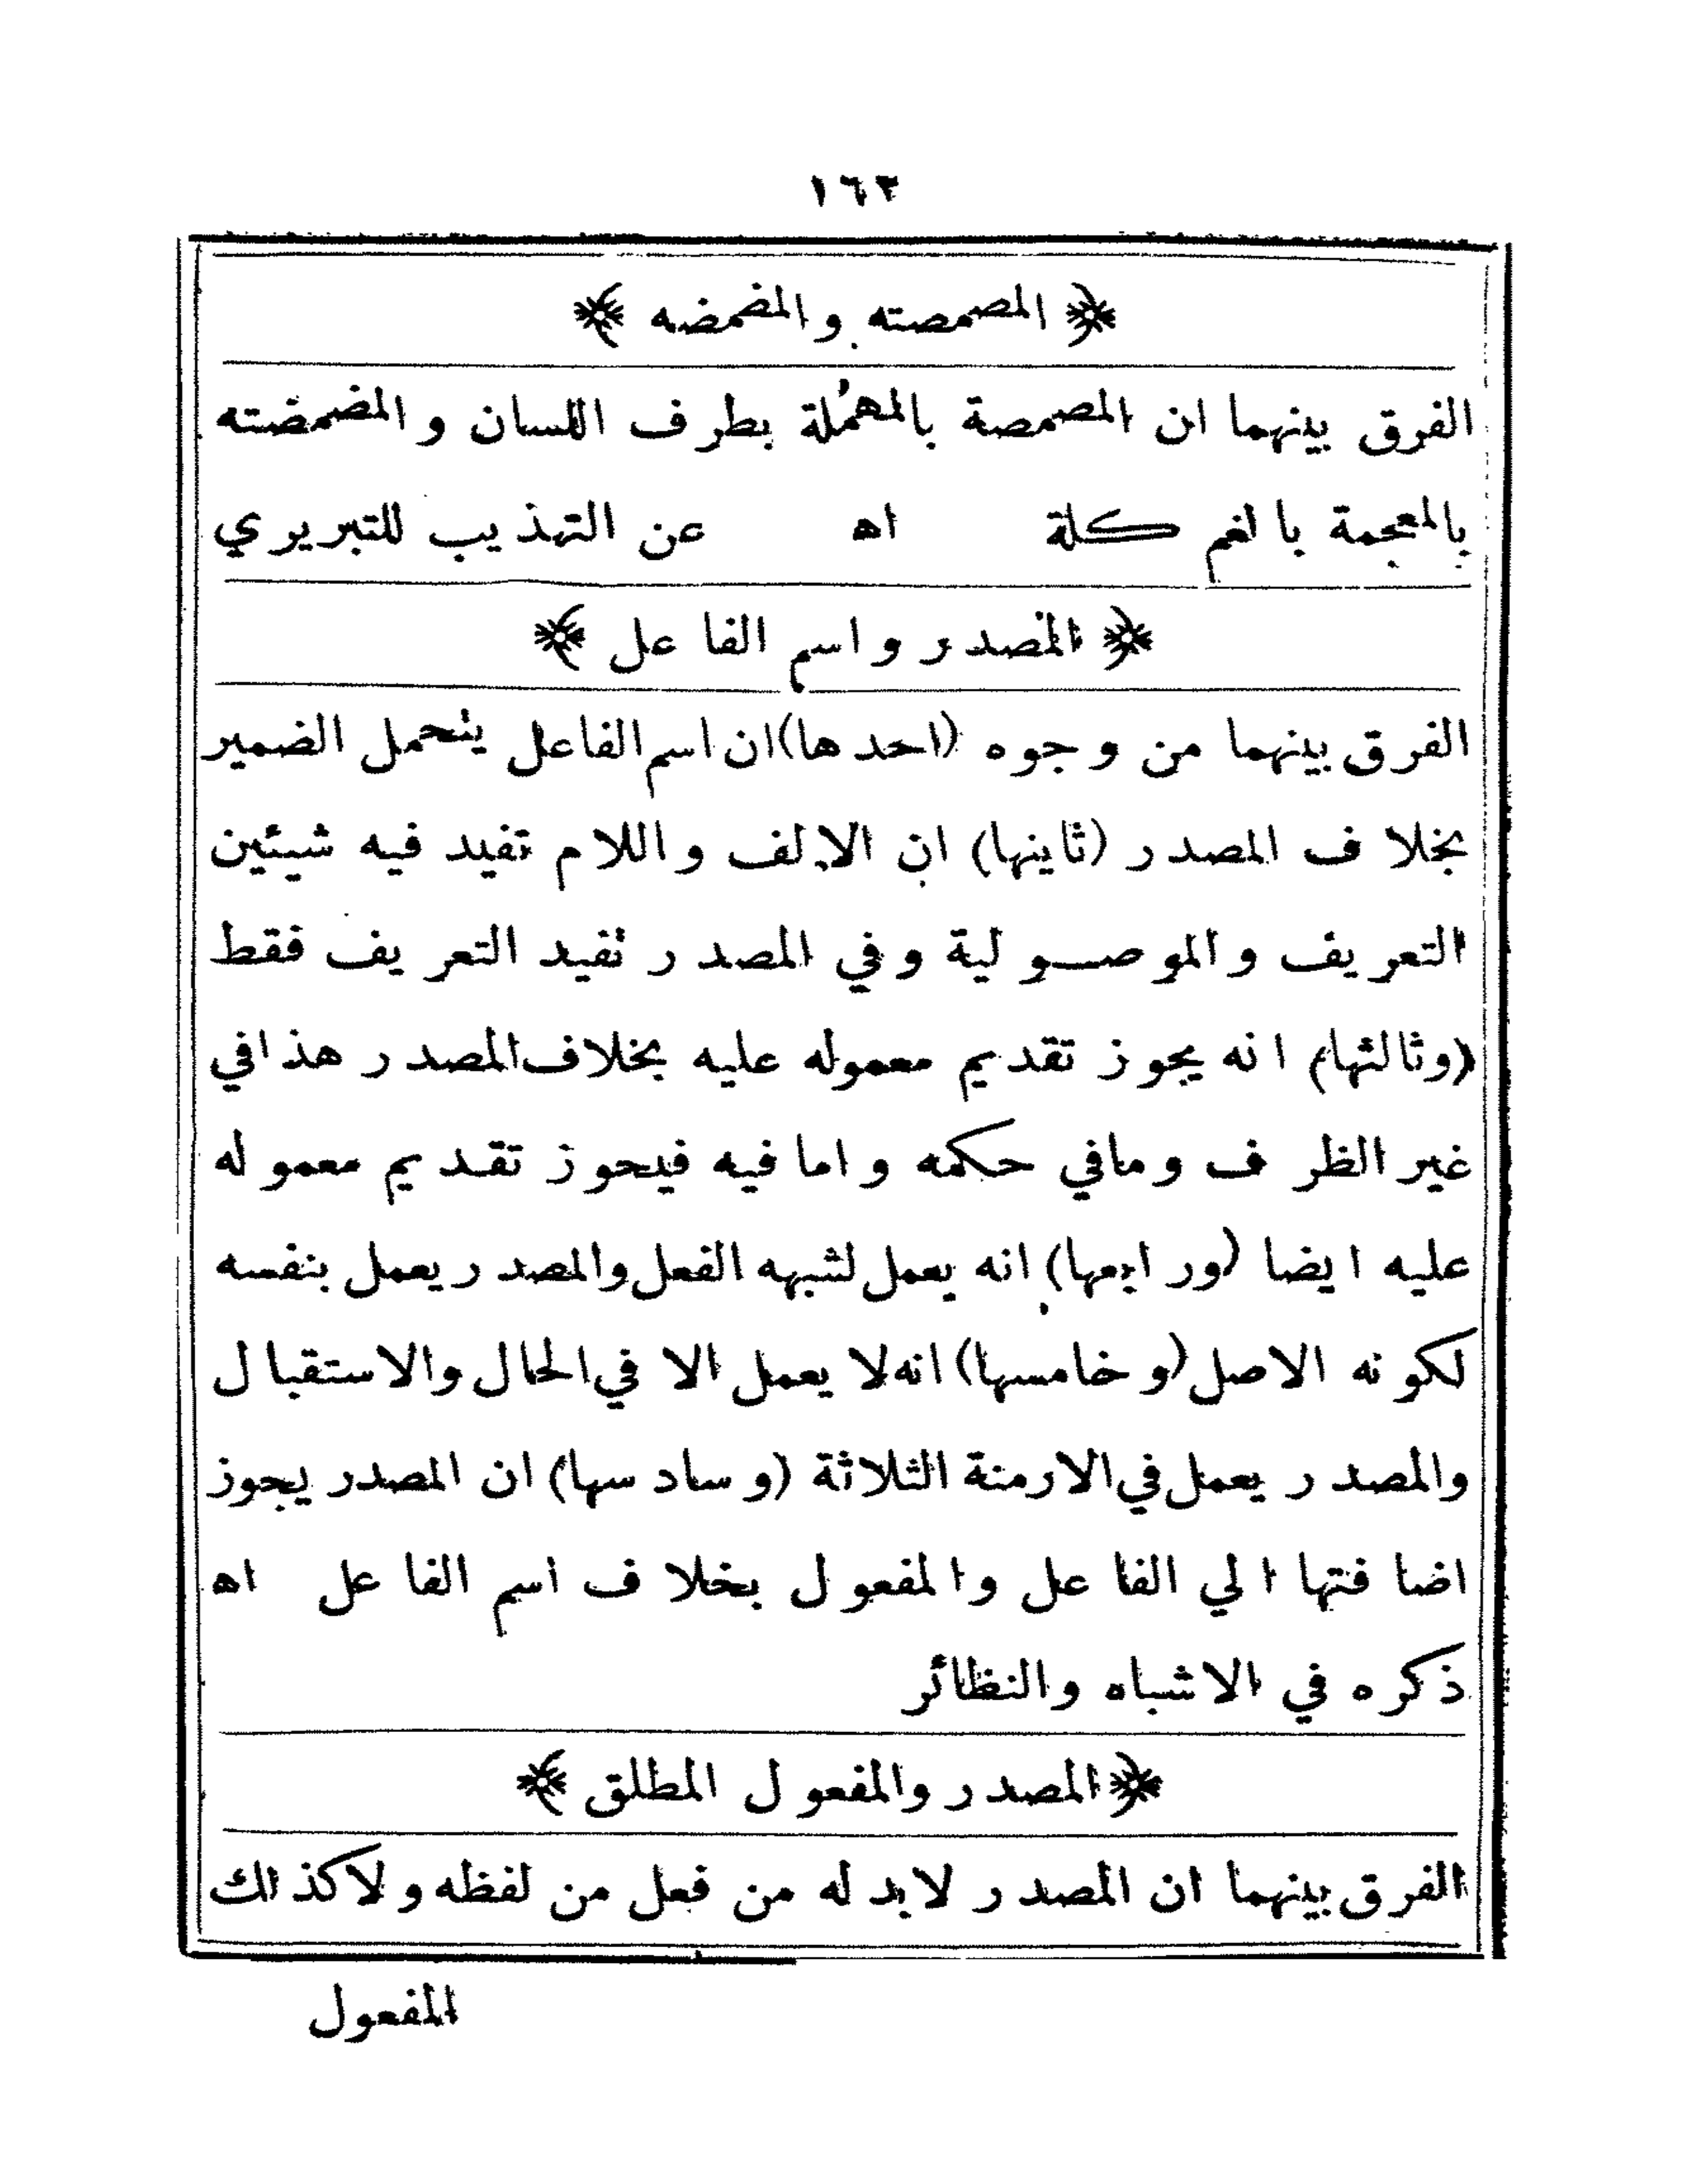 ١٦٢
﴿ المصمصته والمضمضه ﴾
الفرق بينهما ان المصمصة بالمهملة بطرف اللسان والمضمضته
بالمعجمة بالغم كلة اه عن التهذيب للتبريري
﴿ المصدر واسم الفاعل ﴾
الفرق بينهما من وجوه (احدها) ان اسم الفاعل يتحمل الضمير
بخلاف المصدر (ثاينها) ان الالف واللام تفيد فيه شيئين
التعريف والموصولية وفي المصدر تفيد التعريف فقط
(وثالثها) انه يجوز تقديم معموله عليه بخلاف المصدر هذا في
غير الظرف وما في حكمه واما فيه فيحوز تقديم معموله
عليه ايضا (ورابعها) انه يعمل لشبهه الفعل والمصدر يعمل بنفسه
لكونه الاصل (وخامسها) انه لا يعمل الا في الحال والاستقبال
والمصدر يعمل في الارمنة الثلاثة (وسادسها) ان المصدر يجوز
اضافتها الي الفاعل والمفعول بخلاف اسم الفاعل اه
ذكره في الاشباه والنظائر
﴿ المصدر والمفعول المطلق ﴾
الفرق بينهما ان المصدر لابد له من فعل من لفظه ولاكذلك
المفعول